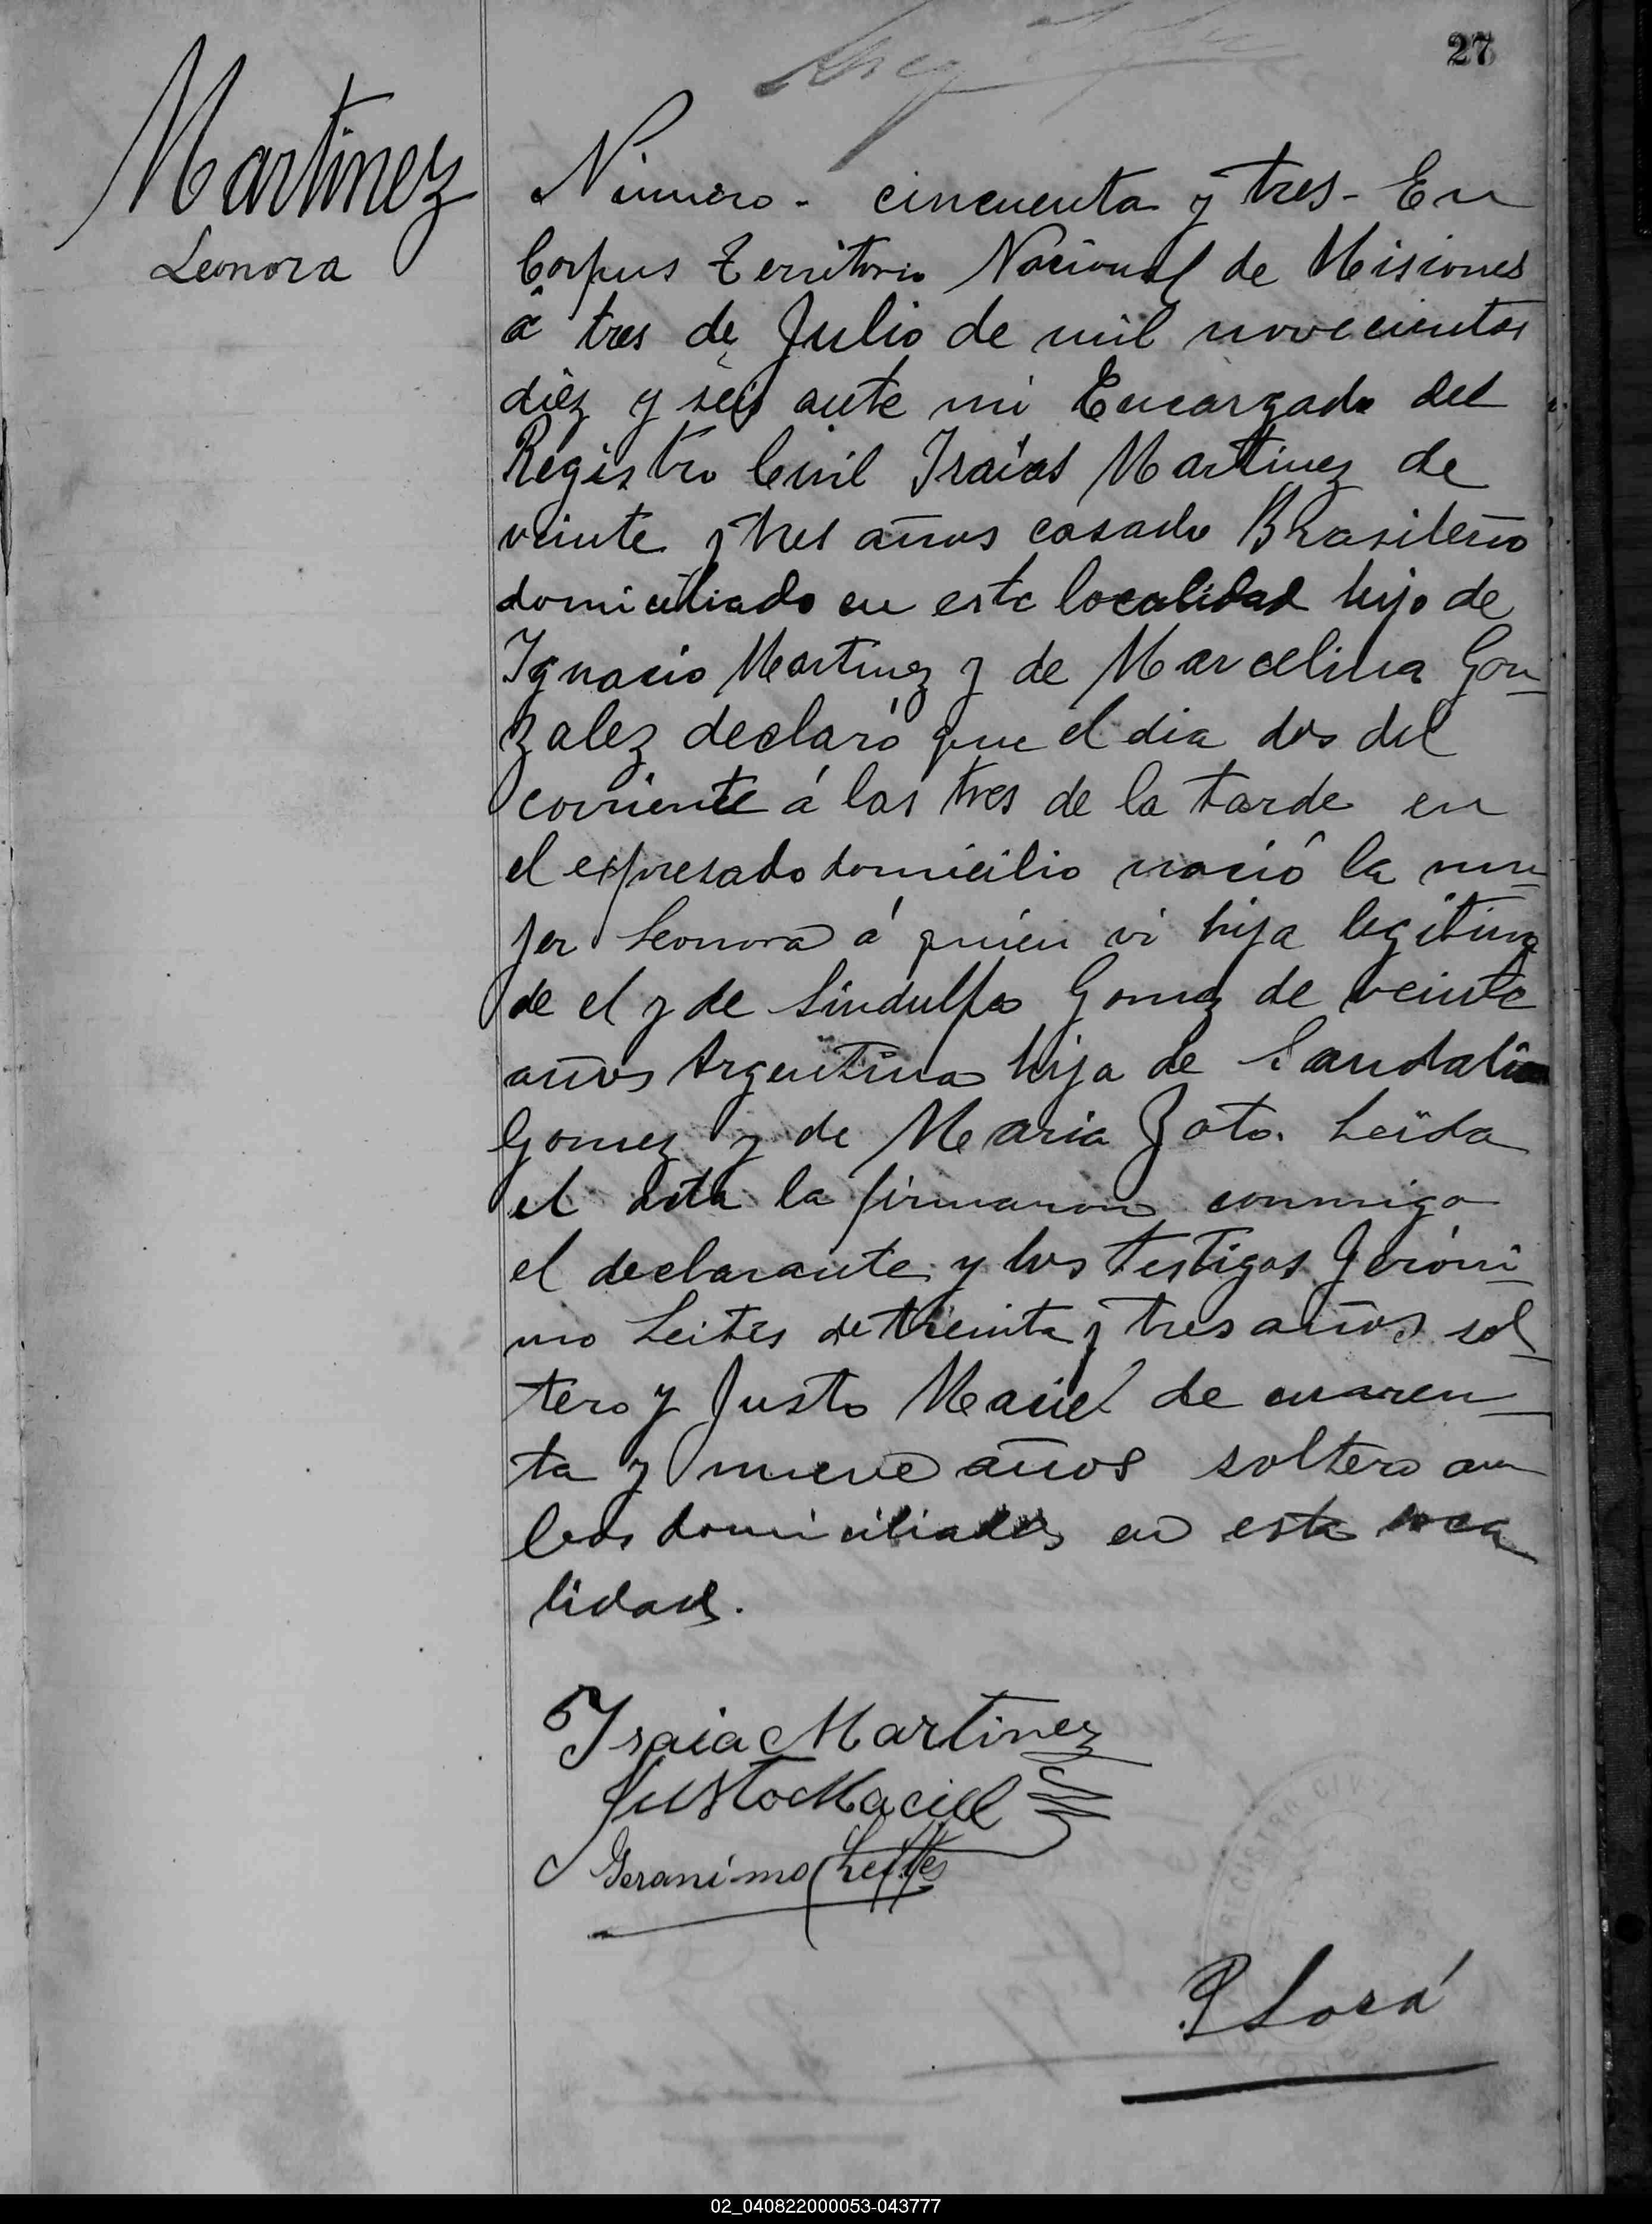 27
Martinez
Leonora
Número - cincuenta y tres - En
Corpus Territorio Nacional de Misiones
á tres de Julio de mil novecientos
diez y seis ante mi Encargado del
Registro Civil Isaías Martinez de
veinte y tres años casado Brasileño
domiciliado en esta localidad hijo de
Ignacio Martinez y de Marcelina Gon-
zalez declaró que el dia dos del
corriente á las tres de la tarde en
el expresado domicilio nació la mu-
jer Leonora á quien vi hija legitima
de el y de Sindulfa Gomez de veinte
años Argentina hija de Sandalio
Gomez y de Maria Soto. Leida
el acta la firmaron conmigo
el declarante y los testigos Geróni-
mo Leites de treinta y tres años sol-
tero y Justo Maciel de cuaren-
ta y nueve años soltero am
bos domiciliados en esta loca
lidad.
Isaia Martinez
Justo Maciel
Geranimo Leites
REGISTRO CIVIL
02_040822000053-043777